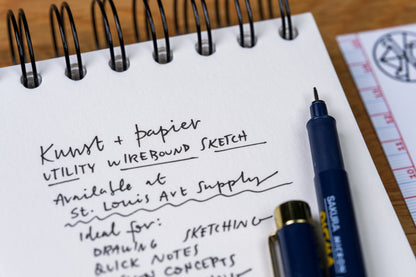 Kunst + papier
UTILITY WIREBOUND SKETCH
Available at
St. Louis Art Supply
Ideal for:
DRAWING SKETCHING
QUICK NOTES
CONCEPTS
SAKURA MICRON